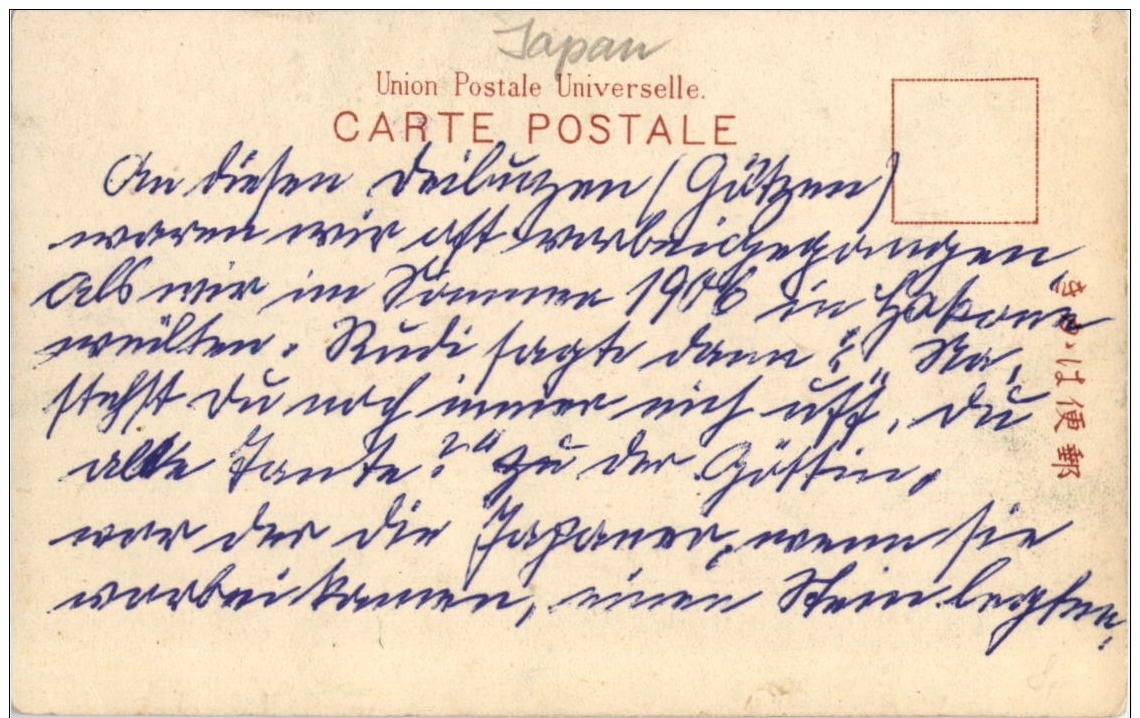 Japan
Union Postale Universelle.
CARTE POSTALE
An diesen (Götzen)
waren wir oft vorbeigegangen,
als wir im Sommer 1906 in Hakone
weilten. Rudi sagte dann: "Na,
stehst Du noch immer nich uff, Du
alte Tante?" zu der Göttin,
vor der die Japaner, wenn sie
vorbeikamen, einen Stein legten.
きかは便郵